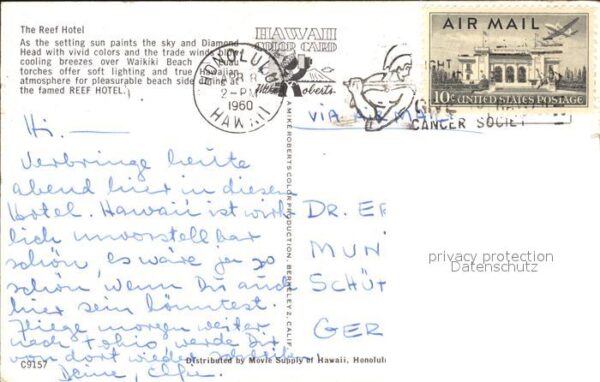 The Reef Hotel
As the setting sun paints the sky and Diamond
Head with vivid colors and the trade winds blow
cooling breezes over Waikiki Beach
torches offer soft lighting and true Hawaiian
atmosphere for pleasurable beach side dining
the famed REEF HOTEL.
HAWAII
COLOR CARD
Mike Roberts
HONOLULU
2-PM
1960
HAWAII
AIR MAIL
10¢ UNITED STATES POSTAGE
FIGHT
GIVE
CANCER SOCIETY
VIA AIR MAIL
Hi —
Verbringe heute
abend hier in diesem
Hotel. Hawaii ist wirk
lich unvorstellbar
schön, es wäre ja so
schön, wenn Du auch
hier sein könntest.
Fliege morgen weiter
nach Tokio, werde Dir
von dort wieder schreiben!
Deine,
DR. ER
MUN
SCHÜT
GER
privacy protection
Datenschutz
A MIKE ROBERTS COLOR PRODUCTION, BERKELEY 2, CALIF.
C9157
Distributed by Movie Supply of Hawaii, Honolulu